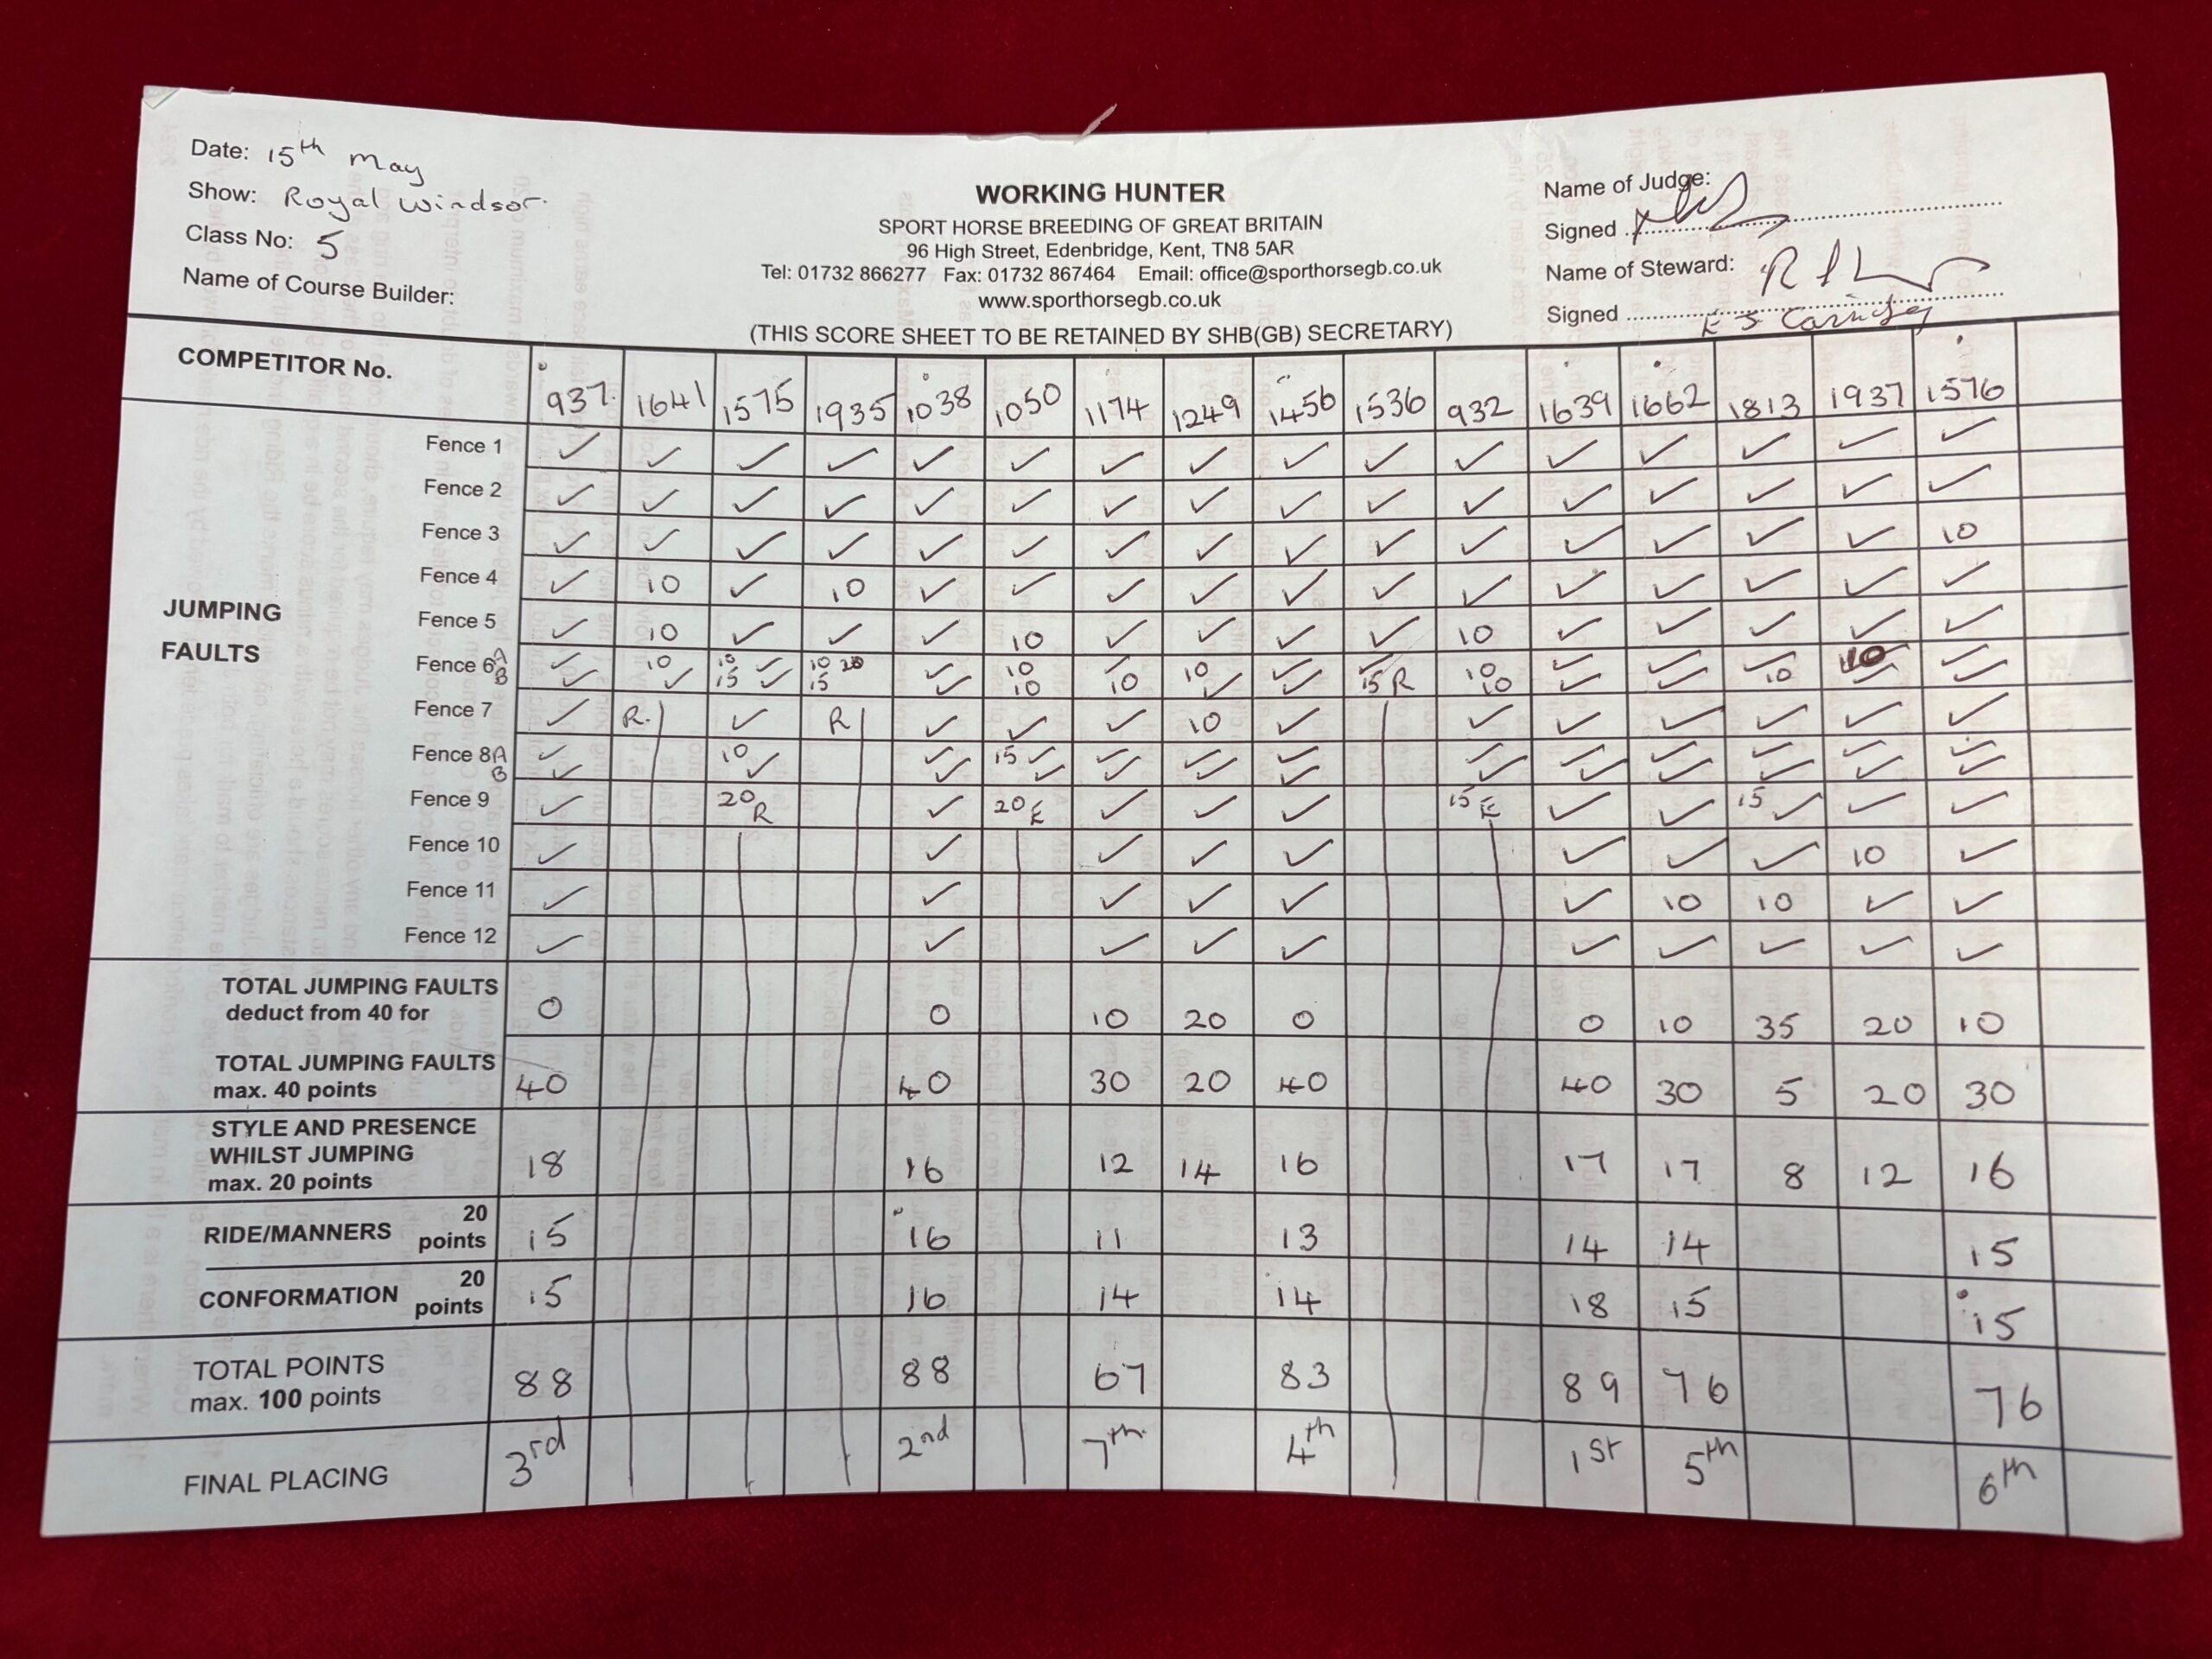 Date: 15th May
Show: Royal Windsor.
Class No: 5
Name of Course Builder:
WORKING HUNTER
SPORT HORSE BREEDING OF GREAT BRITAIN
96 High Street, Edenbridge, Kent, TN8 5AR
Tel: 01732 866277 Fax: 01732 867464 Email: office@sporthorsegb.co.uk
www.sporthorsegb.co.uk
(THIS SCORE SHEET TO BE RETAINED BY SHB(GB) SECRETARY)
Name of Judge:
Signed
Name of Steward:
Signed
COMPETITOR No. 937. 1641 1575 1935 1038 1050 1174 1249 1456 1536 932 1639 1662 1813 1937 1576
JUMPING FAULTS
Fence 1 ✓ ✓ ✓ ✓ ✓ ✓ ✓ ✓ ✓ ✓ ✓ ✓ ✓ ✓ ✓ ✓
Fence 2 ✓ ✓ ✓ ✓ ✓ ✓ ✓ ✓ ✓ ✓ ✓ ✓ ✓ ✓ ✓ ✓
Fence 3 ✓ ✓ ✓ ✓ ✓ ✓ ✓ ✓ ✓ ✓ ✓ ✓ ✓ ✓ ✓ 10
Fence 4 ✓ 10 ✓ 10 ✓ ✓ ✓ ✓ ✓ ✓ ✓ ✓ ✓ ✓ ✓ ✓
Fence 5 ✓ 10 ✓ ✓ ✓ 10 ✓ ✓ ✓ ✓ 10 ✓ ✓ ✓ ✓ ✓
Fence 6A ✓ 10 10 ✓ 10 20 ✓ 10 ✓ 10 ✓ ✓ 10 ✓ ✓ ✓ 10 ✓
B ✓ ✓ 15 ✓ 15 ✓ 10 10 ✓ ✓ 15 R 10 ✓ ✓ 10 ✓ ✓
Fence 7 ✓ R. ✓ R ✓ ✓ ✓ 10 ✓ ✓ ✓ ✓ ✓ ✓ ✓
Fence 8A ✓ 10 ✓ 15 ✓ ✓ ✓ ✓ ✓ ✓ ✓ ✓ ✓ ✓
B ✓ ✓ ✓ ✓ ✓ ✓ ✓ ✓ ✓ ✓ ✓ ✓ ✓
Fence 9 ✓ 20 R ✓ 20 E ✓ ✓ ✓ 15 E ✓ ✓ 15 ✓ ✓ ✓
Fence 10 ✓ ✓ ✓ ✓ ✓ ✓ ✓ ✓ 10 ✓
Fence 11 ✓ ✓ ✓ ✓ ✓ ✓ 10 10 ✓ ✓
Fence 12 ✓ ✓ ✓ ✓ ✓ ✓ ✓ ✓ ✓ ✓
TOTAL JUMPING FAULTS
deduct from 40 for 0 0 10 20 0 0 10 35 20 10
TOTAL JUMPING FAULTS
max. 40 points 40 40 30 20 40 40 30 5 20 30
STYLE AND PRESENCE
WHILST JUMPING
max. 20 points 18 16 12 14 16 17 17 8 12 16
RIDE/MANNERS 20 points 15 16 11 13 14 14 15
CONFORMATION 20 points 15 16 14 14 18 15 15
TOTAL POINTS
max. 100 points 88 88 67 83 89 76 76
FINAL PLACING 3rd 2nd 7th. 4th 1st 5th 6th